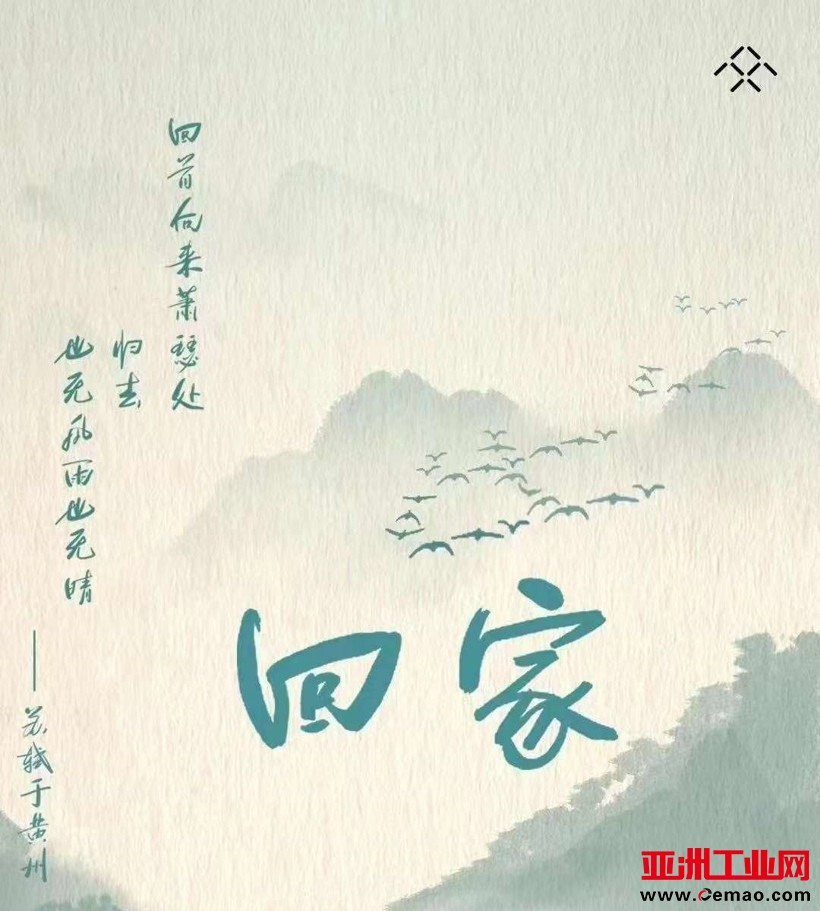 回首向来萧瑟处
归去
也无风雨也无晴
——苏轼于黄州
回家
亚洲工业网
www.Cemao.com